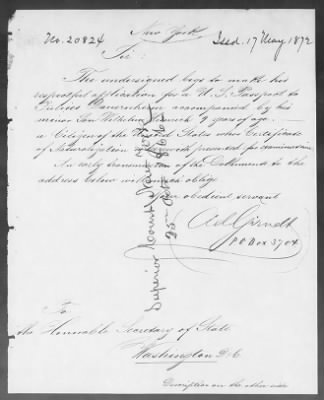 New York
No. 20824
Issd. 17 May 1872
Sir:
The undersigned begs to make his
respectful application for a U. S. Passport to
accompanied by his
minor Son Wilhelm 9 years of age
a Citizen of the United States whose Certificate
of Naturalization is herewith presented for examination
An early transmission of the Document to the
address below will much oblige
Your obedient servant
P O Box 3704
Superior Court New York
25 Oct. 1866
To
the Honorable Secretary of State
Washington D. C.
Description on the other side